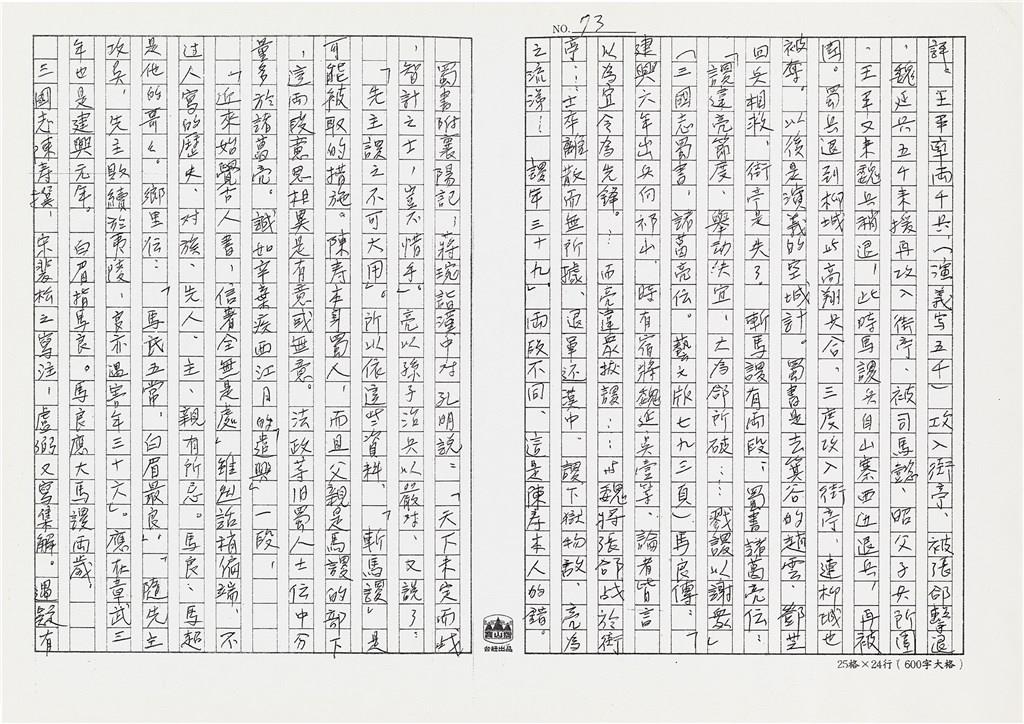 NO. 73
評。王平率兩千兵,(演義寫五千)攻入街亭、被張郃擊退
,魏延兵五千來援再攻入街亭、被司馬懿、昭父子兵所圍
、王平又來魏兵稍退,此時馬謖兵自山寨西退兵,再被
圍。蜀兵退到柳城與高翔兵合、三度攻入街亭、連柳城也
被奪。以後是演義的空城計。蜀書是去箕谷的趙雲、鄧芝
回兵相救、街亭是失了。斬馬謖有兩段:蜀書諸葛亮伝:
「謖違亮節度、舉動決宜、大為郃所破……戮謖以謝衆」
(三國志蜀書,諸葛亮伝。藝文版七九三頁)馬良傳:「
建興六年出兵向祁山、時有宿將魏延、吳壹等、論者皆言
以為宜令為先鋒。…而亮違衆拔謖……與魏將張郃戰於街
亭……士卒離散而無所據、退軍還漢中、謖下獄物故、亮為
之流涕……謖年三十九」兩段不同、這是陳寿本人的錯。
蜀書附襄陽記:蔣琬詣漢中对孔明說:「天下未定而战
,智計之士,豈不惜乎」。亮以孫子治兵以嚴対、又說了:
「先主謖之不可大用」。所以依這些資料、「斬馬謖」是
可能被取的措施。陳寿本身蜀人、而且父親是馬謖的部下
,這兩段意思相異是有意或無意。法政等旧蜀人士伝中分
量多於諸葛亮。誠如辛棄疾西江月的「遣興」一段,
「近來始覺古人書,信著全無是處」雖然話稍偏端、不
过人寫的歷史、対族、先人、主、親有所忌。馬良、馬超
是他的哥々。鄉里伝:「馬氏五常,白眉最良」。隨先主
攻吳,先主敗績於夷陵,良亦遇害年三十六」。應在章武三
年也是建興元年。白眉指馬良。馬良應大馬謖兩歲。
三國志陳寿撰,宋裴松之寫注,盧弼又寫集解。遇疑有
25格×24行(600字大格)
台紐出品